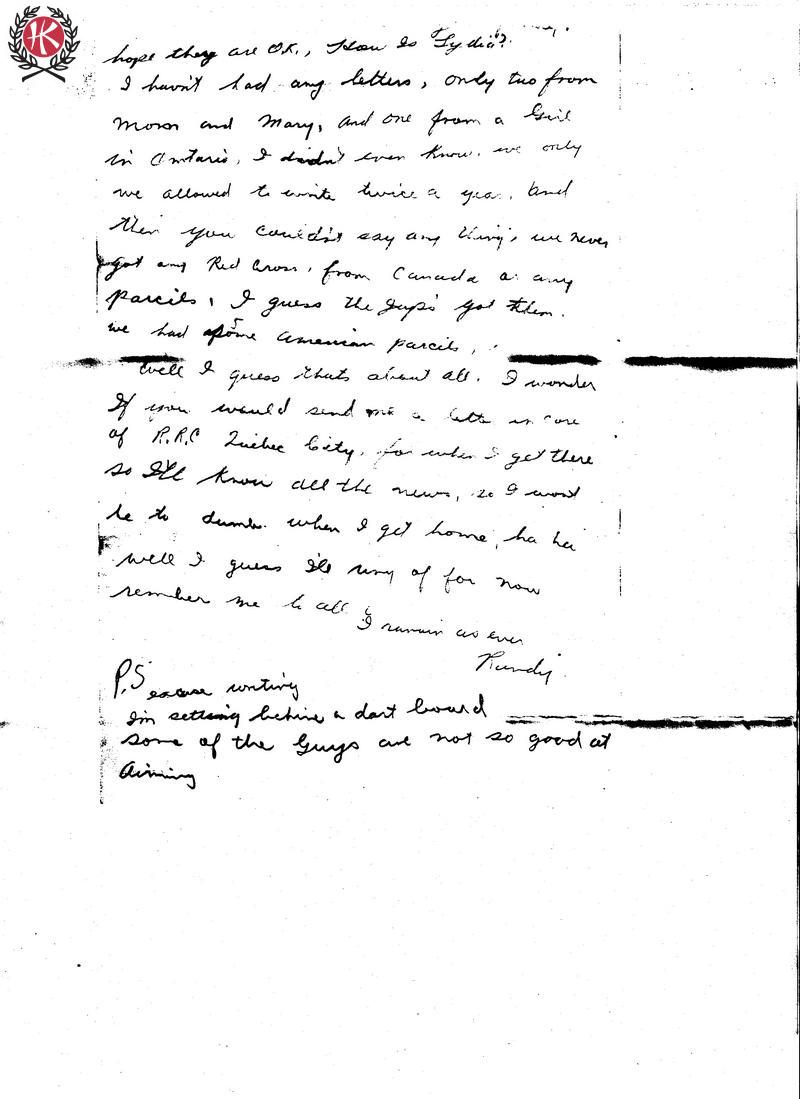 HK
hope they are O.K., How is "Lydia"?
I havn't had any letters, only two from
Mom and Mary, and one from a Girl
in Ontario, I didn't even know. we only
we allowed to write twice a year. And
then you couldn't say any thing, we never
got any Red Cross, from Canada or any
parcils, I guess the Jap's got them.
we had some American parcils,
Well I guess thats about all. I wonder
If you would send me a lette in care
of R.R.C Quebec City, for when I get there
so I'll know all the news, so I wont
be to dumb when I get home, ha ha
well I guess I'll ring of for now
remember me to all
I remain as ever
P.S excuse writing
Im setting behine a dart board
some of the Guys are not so good at
Aiming